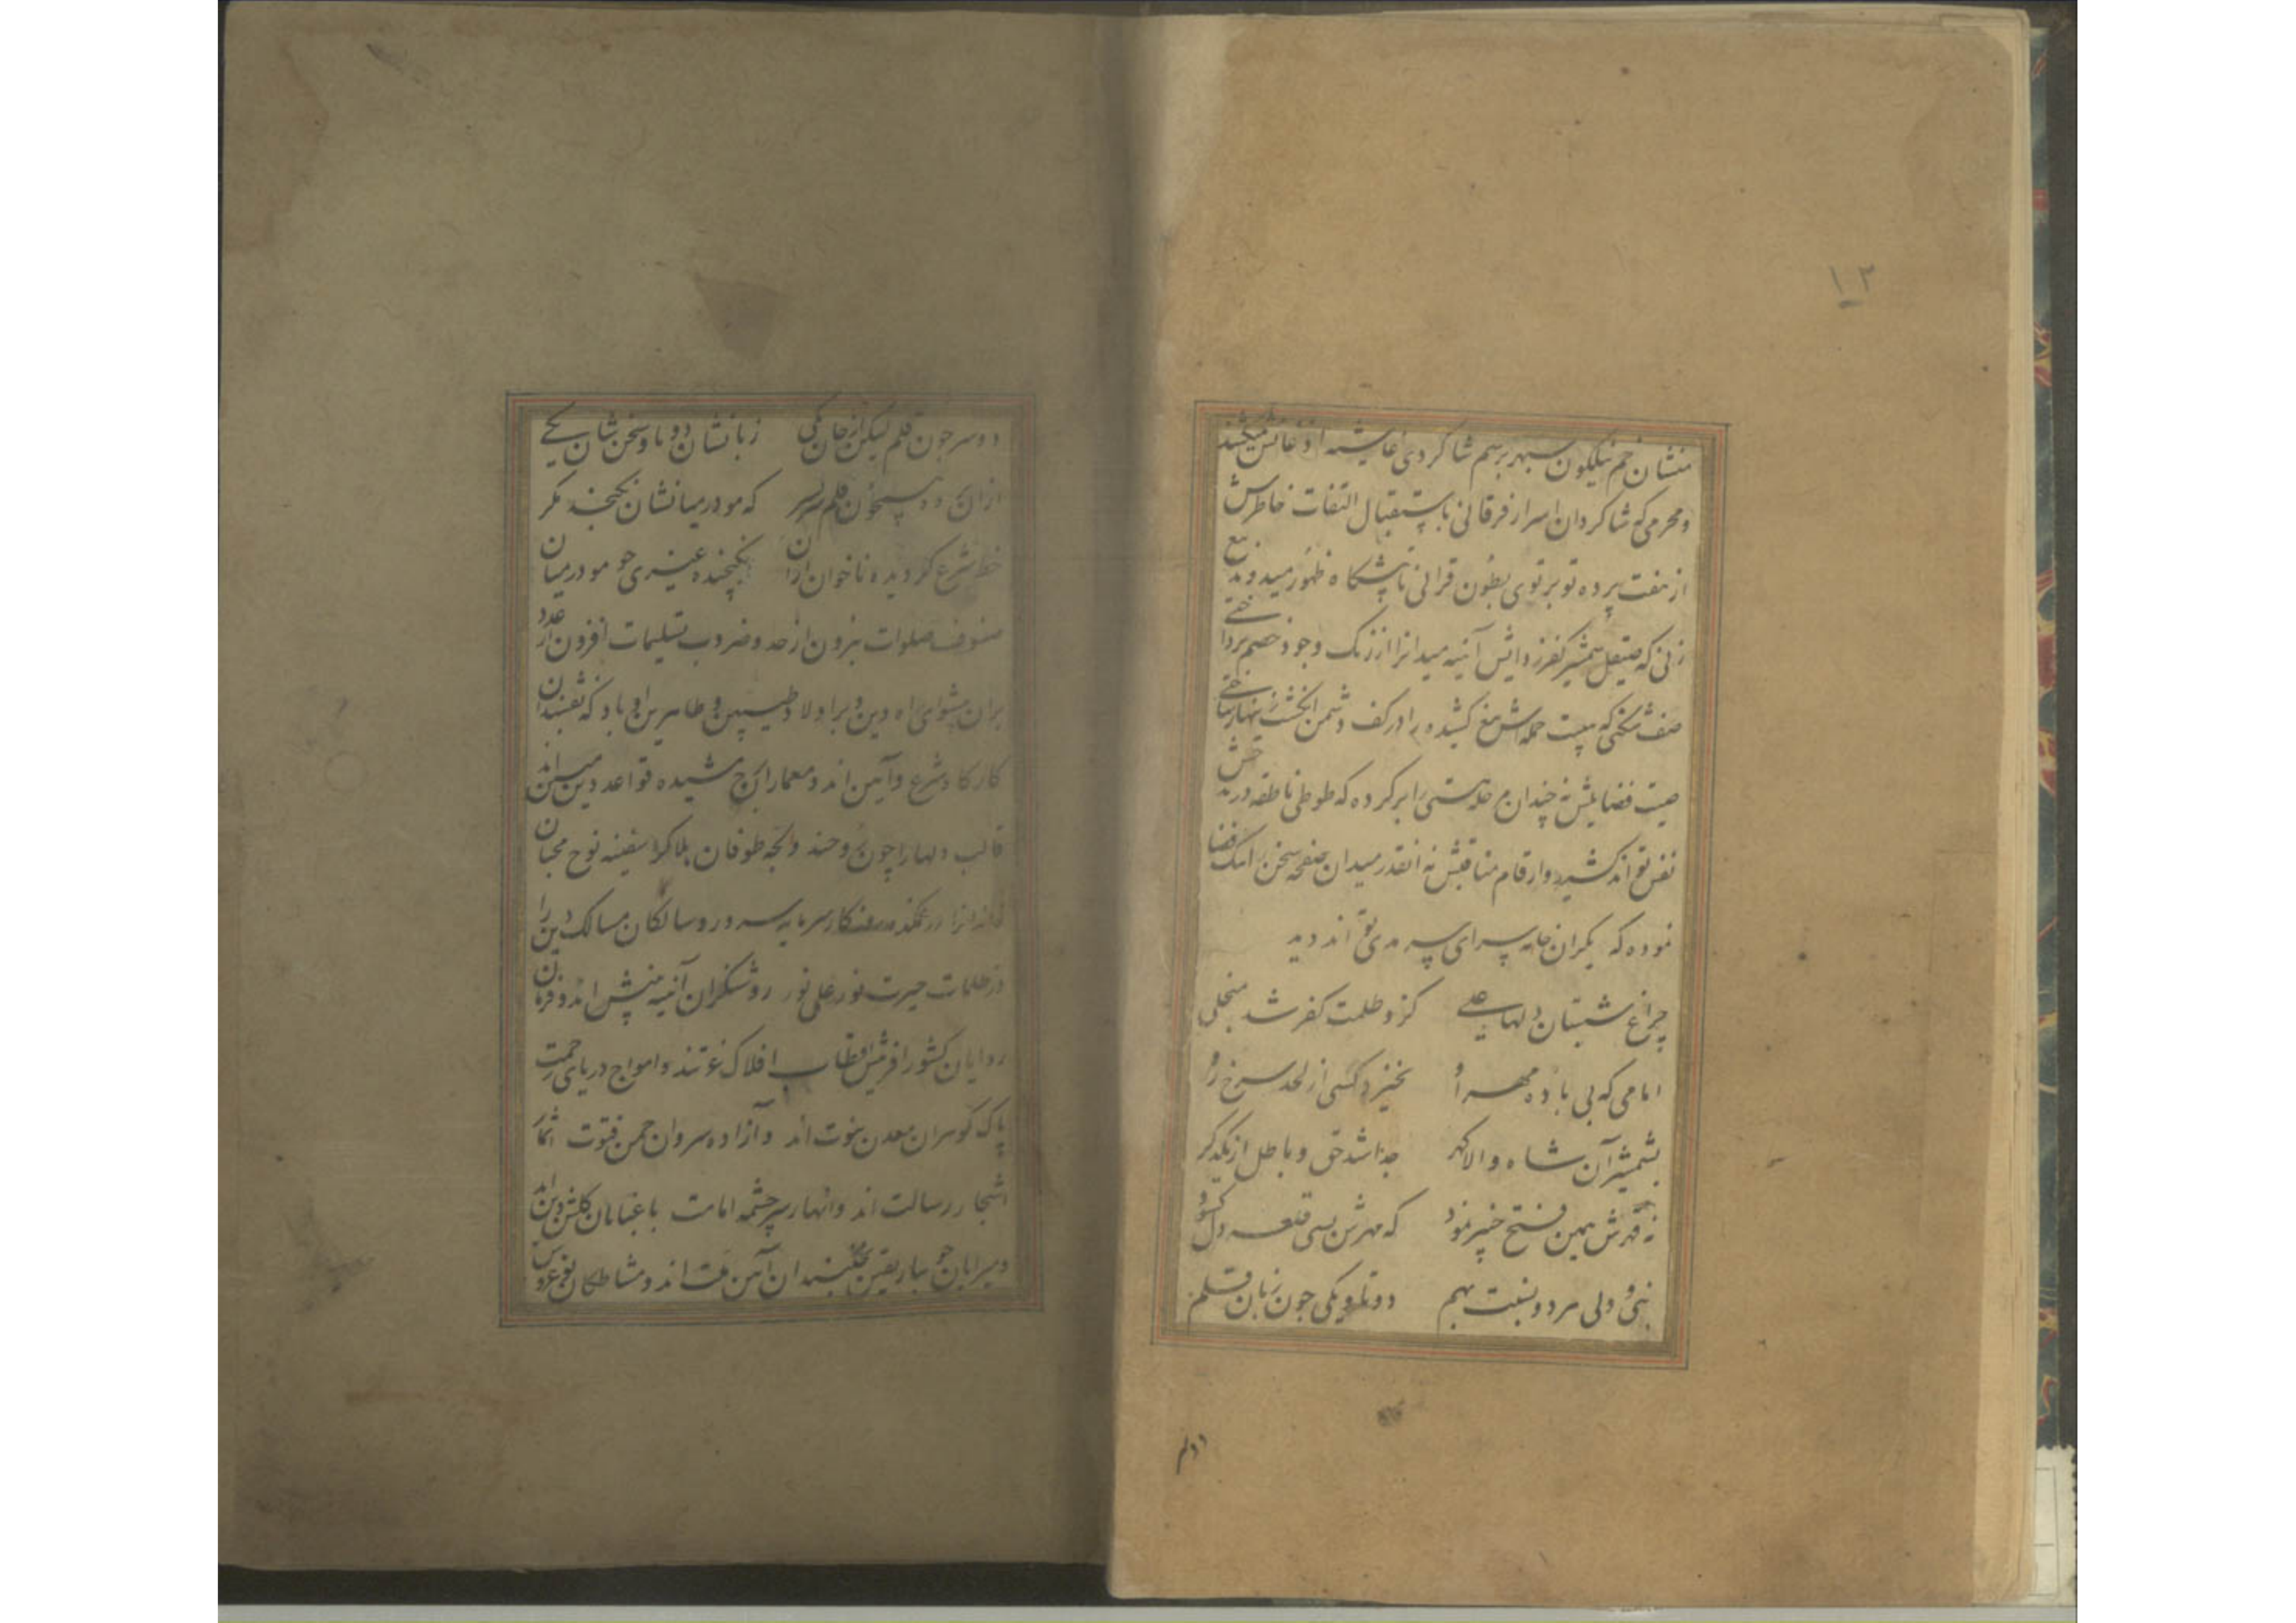 ۱۲
منشان خم نیلگون سپهر برسم شاکردی غاشیه
ومحرمی که شاکردان اسرار فرقانی باستقبال التفات خاطرش
از هفت پرده تو برتوی بطون قرانی تا پیشگاه ظهور میدوند
زنی که صیقل شمشیر کفرزدایش آینه میدانرا از زنک وجود خصم
صف شکنی که هیبت حمله اش تیغ کشیده را در کف دشمن انکشت
صیت فضایلش نه چندان هستی را پر کرده که طوطی ناطقه در
نفس تواند کشید وارقام مناقبش نه انقدر میدان صفحه سخن را
نموده که یکران خامه سراپای سر مدی تواند دید
چراغ شبستان دلها علی کزو ظلمت کفر شد منجلی
امامی که بی باده مهر او نخیزد کسی از لحد سرخ رو
بشمشیر آن شاه والا کهر جدا شد حق وباطل از یکدکر
نه قهرش همین فتح خیبر نمود که مهرش بسی قلعه دل کشود
نبی و ولی هر دو نسبت بهم دوتا ویکی چون زبان قلم
دوسر
دوسر چون قلم لیکن از جان یکی زبانشان دوتا وسخن شان یکی
ازان هر دو قلم سر بسر که مو در میانشان نکنجد مکر
خط شرع کردیده ناخوان ازان نکنجیده غیری چو مو در میان
صنوف صلوات بیرون از حد وضروب تسلیمات افزون از عدد
بران پیشوای راه دین وبر اولاد طیبین وطاهرین او باد که نقشبندان
کارکاه شرع وآیین اند ومعماران قواعد دین
قالب دلها را چون روحند ولجه طوفان بلا را سفینه نوح محبان
سرمایه سرور وسالکان مسالک دین را
در ظلمات حیرت نور علی نور روشنکران آینه بینش اند وفرمان
روایان کشور افرینش اقطاب افلاک عزتند وامواج دریای رحمت
پاک کوهران معدن نبوت اند وآزاده سروان چمن فتوت اثمار
اشجار رسالت اند وانهار سرچشمه امامت باغبانان کلشن دین اند
ومیرابان جویبار یقین آیین ملت اند ومشاطکان نوعروس